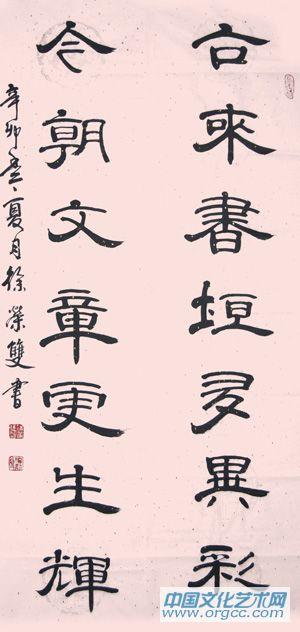 古來書垣多異彩
今朝文章更生輝
辛卯夏月徐榮雙書
中国文化艺术网
www.orgcc.com